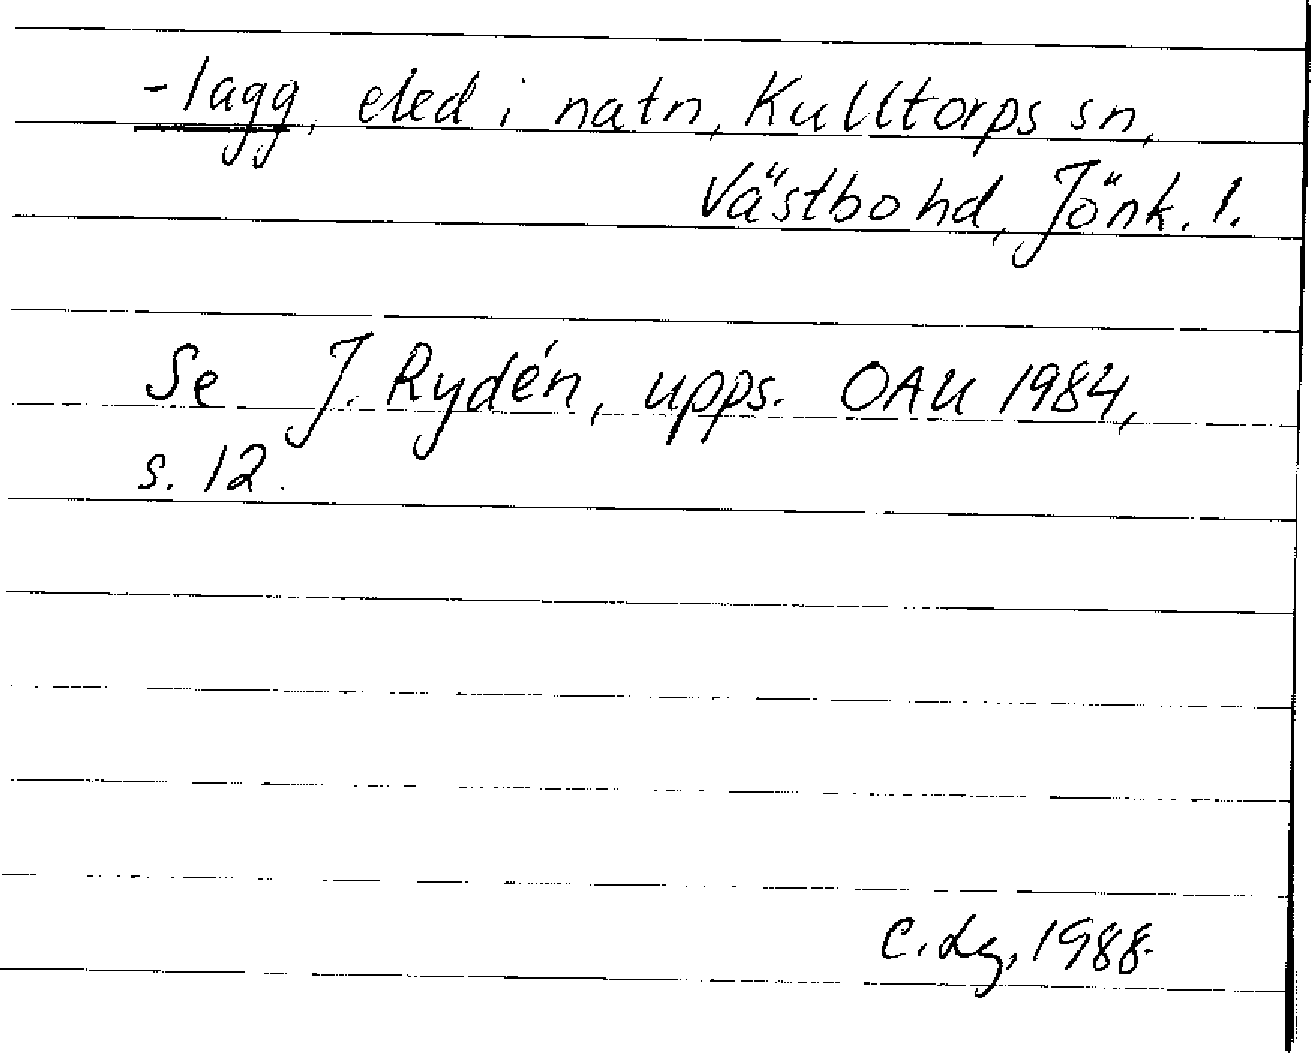 -lagg, eled i natn, Kulltorps sn,
Västbo hd, Jönk. l.
Se J. Rydén, upps. OAU 1984,
s. 12.
C. Lg, 1988.